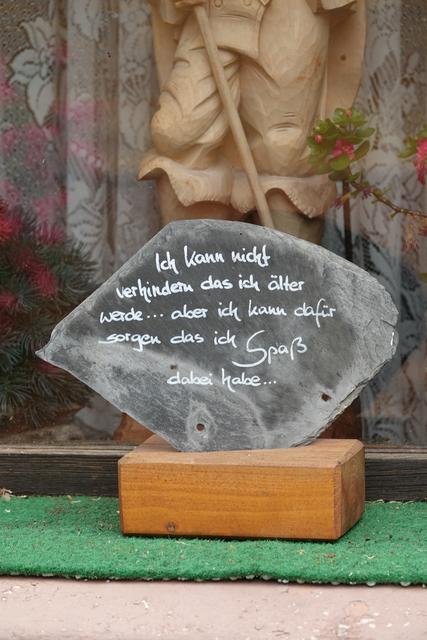 Ich kann nicht
verhindern das ich älter
werde... aber ich kann dafür
sorgen das ich Spaß
dabei habe...